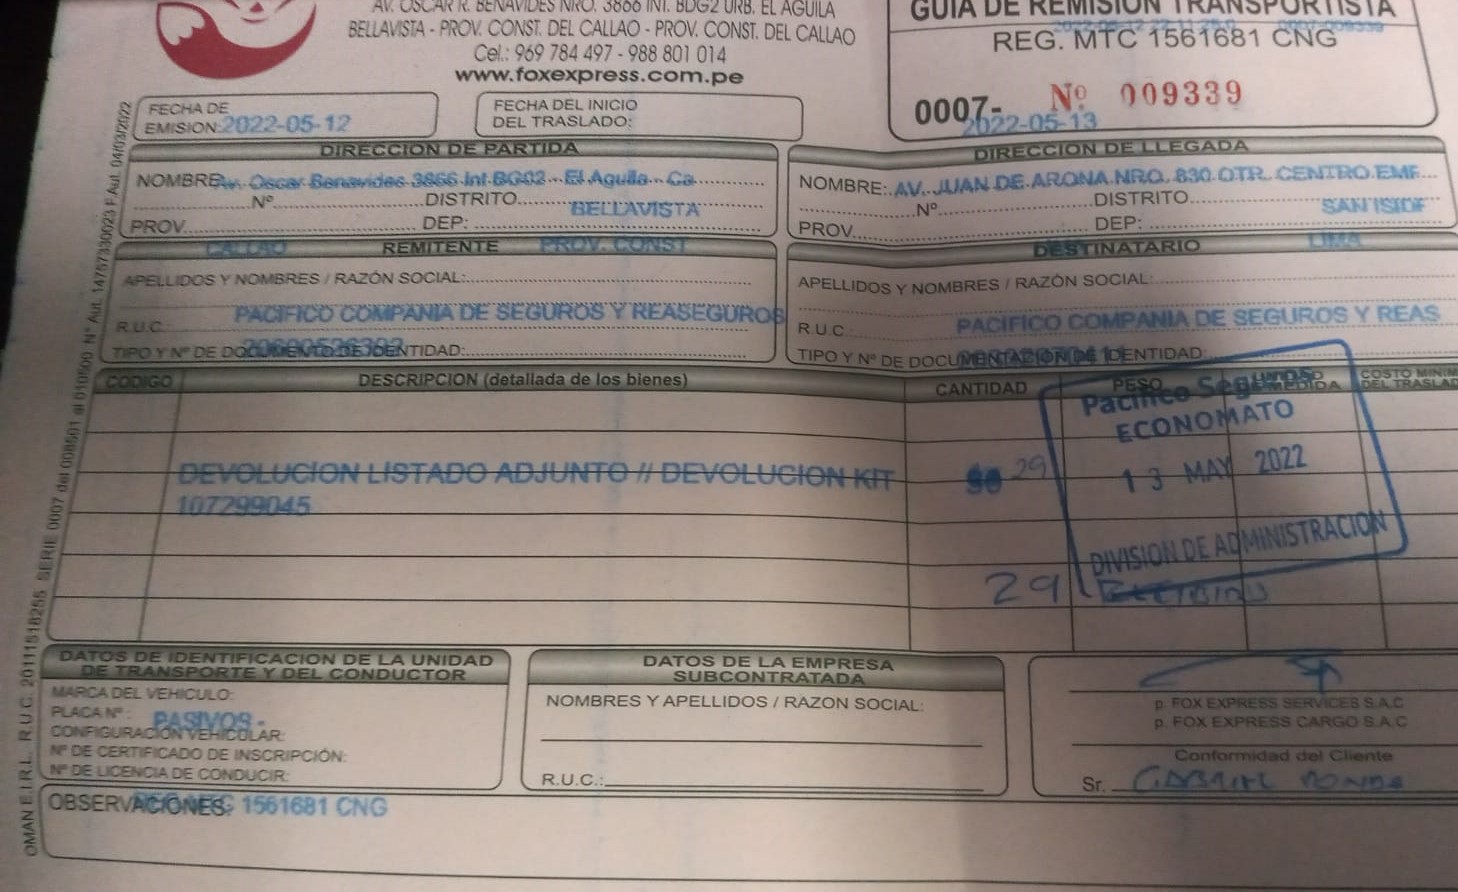 AV. OSCAR R. BENAVIDES NRO. 3866 INT. BDG2 URB. EL AGUILA
BELLAVISTA - PROV. CONST. DEL CALLAO - PROV. CONST. DEL CALLAO
Cel.: 969 784 497 - 988 801 014
www.foxexpress.com.pe
GUIA DE REMISION TRANSPORTISTA
REG. MTC 1561681 CNG
0007- Nº 009339
2022-05-13
FECHA DE
EMISION: 2022-05-12
FECHA DEL INICIO
DEL TRASLADO:
DIRECCION DE PARTIDA
NOMBRE: Av. Oscar Benavides 3866 Int BG02 - El Aguila - Ca
Nº DISTRITO BELLAVISTA
PROV. DEP:
CALLAO PROV. CONST
DIRECCION DE LLEGADA
NOMBRE: AV. JUAN DE ARONA NRO. 830 OTR. CENTRO EMF
Nº DISTRITO SAN ISIDF
PROV. DEP:
LIMA
REMITENTE
APELLIDOS Y NOMBRES / RAZÓN SOCIAL:
PACIFICO COMPANIA DE SEGUROS Y REASEGUROS
R.U.C.
TIPO Y Nº DE DOCUMENTO DE IDENTIDAD:
DESTINATARIO
APELLIDOS Y NOMBRES / RAZÓN SOCIAL:
PACIFICO COMPANIA DE SEGUROS Y REAS
R.U.C.
TIPO Y Nº DE DOCUMENTACION DE IDENTIDAD:
CODIGO DESCRIPCION (detallada de los bienes) CANTIDAD PESO UNIDAD MEDIDA COSTO MINIM DEL TRASLAD
DEVOLUCION LISTADO ADJUNTO // DEVOLUCION KIT
107299045
29
Pacifico Seguros
ECONOMATO
13 MAY 2022
DIVISION DE ADMINISTRACION
29
RECIBIDO
DATOS DE IDENTIFICACION DE LA UNIDAD
DE TRANSPORTE Y DEL CONDUCTOR
MARCA DEL VEHICULO:
PLACA Nº: PASIVOS -
CONFIGURACIÓN VEHICULAR:
Nº DE CERTIFICADO DE INSCRIPCIÓN:
Nº DE LICENCIA DE CONDUCIR:
DATOS DE LA EMPRESA
SUBCONTRATADA
NOMBRES Y APELLIDOS / RAZON SOCIAL:
R.U.C.:
p. FOX EXPRESS SERVICES S.A.C
p. FOX EXPRESS CARGO S.A.C
Conformidad del Cliente
Sr. GABRIEL
OBSERVACIONES: 1561681 CNG
OMAN E.I.R.L. R.U.C. 20111518255 SERIE 0007 del 008501 al 010500 Nº Aut. 14757330023 F. Aut. 04/03/2022